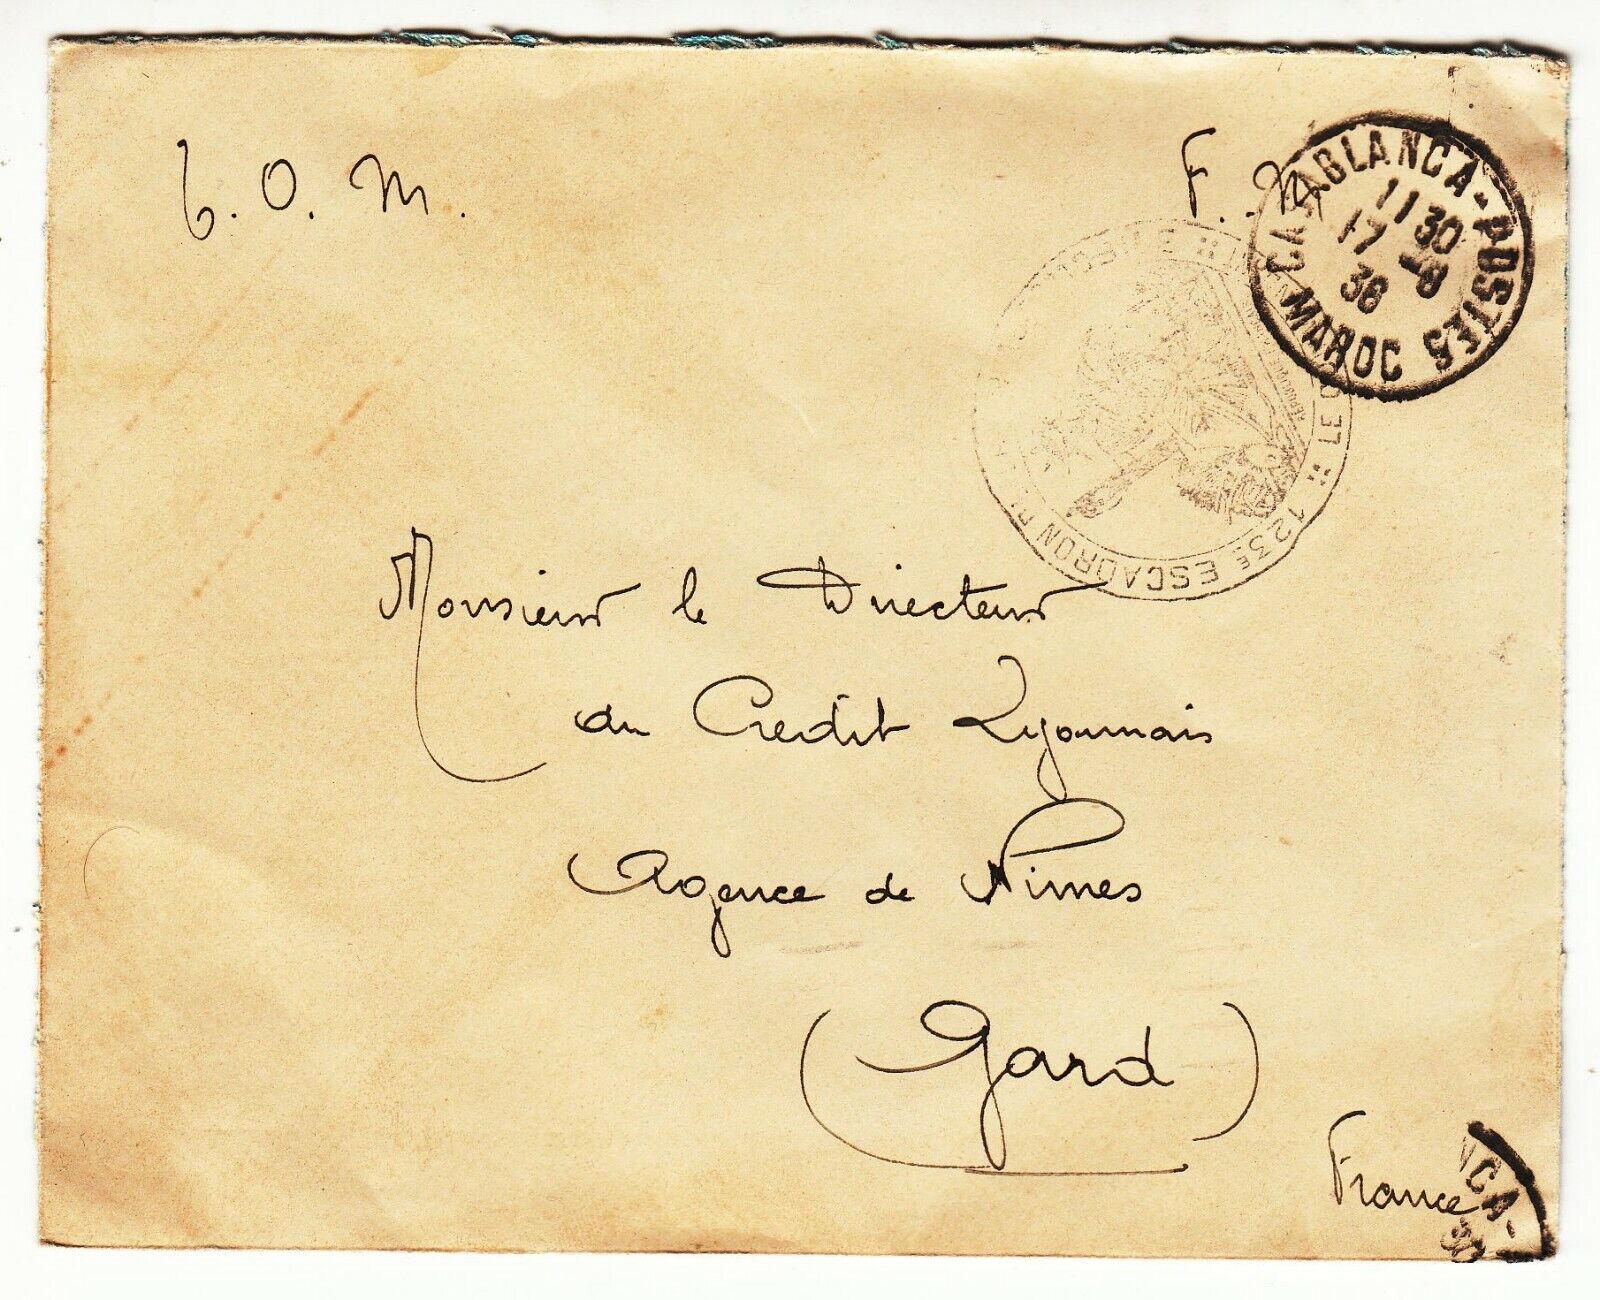 T.O.M.
F.M.
CASABLANCA-POSTES
11 30
17 -8
36
MAROC
123E ESCADRON
LE
Monsieur le Directeur
du Credit Lyonnais
Agence de Nimes
(Gard)
France
NCA-
30